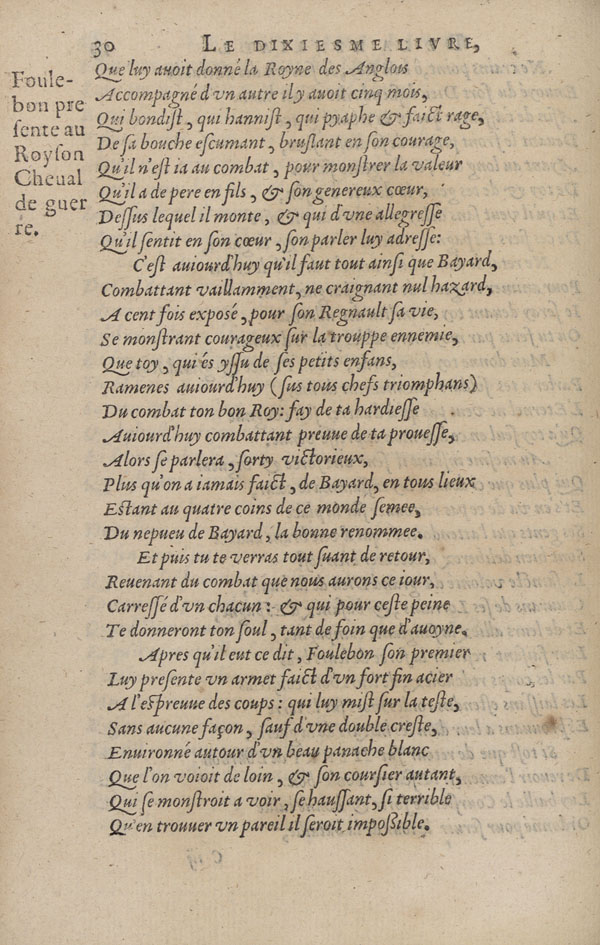 30 LE DIXIESME LIVRE,
Foule-
bon pre
sente au
Roy son
Cheual
de guer
re.
Que luy auoit donné la Royne des Anglois
Accompagné d'vn autre il y auoit cinq mois,
Qui bondist, qui hannist, qui pyaphe & faict rage,
De sa bouche escumant, bruslant en son courage,
Qu'il n'est ia au combat, pour monstrer la valeur
Qu'il a de pere en fils, & son genereux cœur,
Dessus lequel il monte, & qui d'vne allegresse
Qu'il sentit en son cœur, son parler luy adresse:
C'est auiourd'huy qu'il faut tout ainsi que Bayard,
Combattant vaillamment, ne craignant nul hazard,
A cent fois exposé, pour son Regnault sa vie,
Se monstrant courageux sur la trouppe ennemie,
Que toy, qui és yssu de ses petits enfans,
Ramenes auiourd'huy (sus tous chefs triomphans)
Du combat ton bon Roy: fay de ta hardiesse
Auiourd'huy combattant preuue de ta prouesse,
Alors se parlera, sorty victorieux,
Plus qu'on a iamais faict, de Bayard, en tous lieux
Estant au quatre coins de ce monde semee,
Du nepueu de Bayard, la bonne renommee.
Et puis tu te verras tout suant de retour,
Reuenant du combat que nous aurons ce iour,
Carressé d'vn chacun: & qui pour ceste peine
Te donneront ton soul, tant de foin que d'auoyne.
Apres qu'il eut ce dit, Foulebon son premier
Luy presente vn armet faict d'vn fort fin acier
A l'espreuue des coups: qui luy mist sur la teste,
Sans aucune façon, sauf d'vne double creste,
Enuironné autour d'vn beau panache blanc
Que l'on voioit de loin, & son coursier autant,
Qui se monstroit a voir, se haussant, si terrible
Qu'en trouuer vn pareil il seroit impossible.